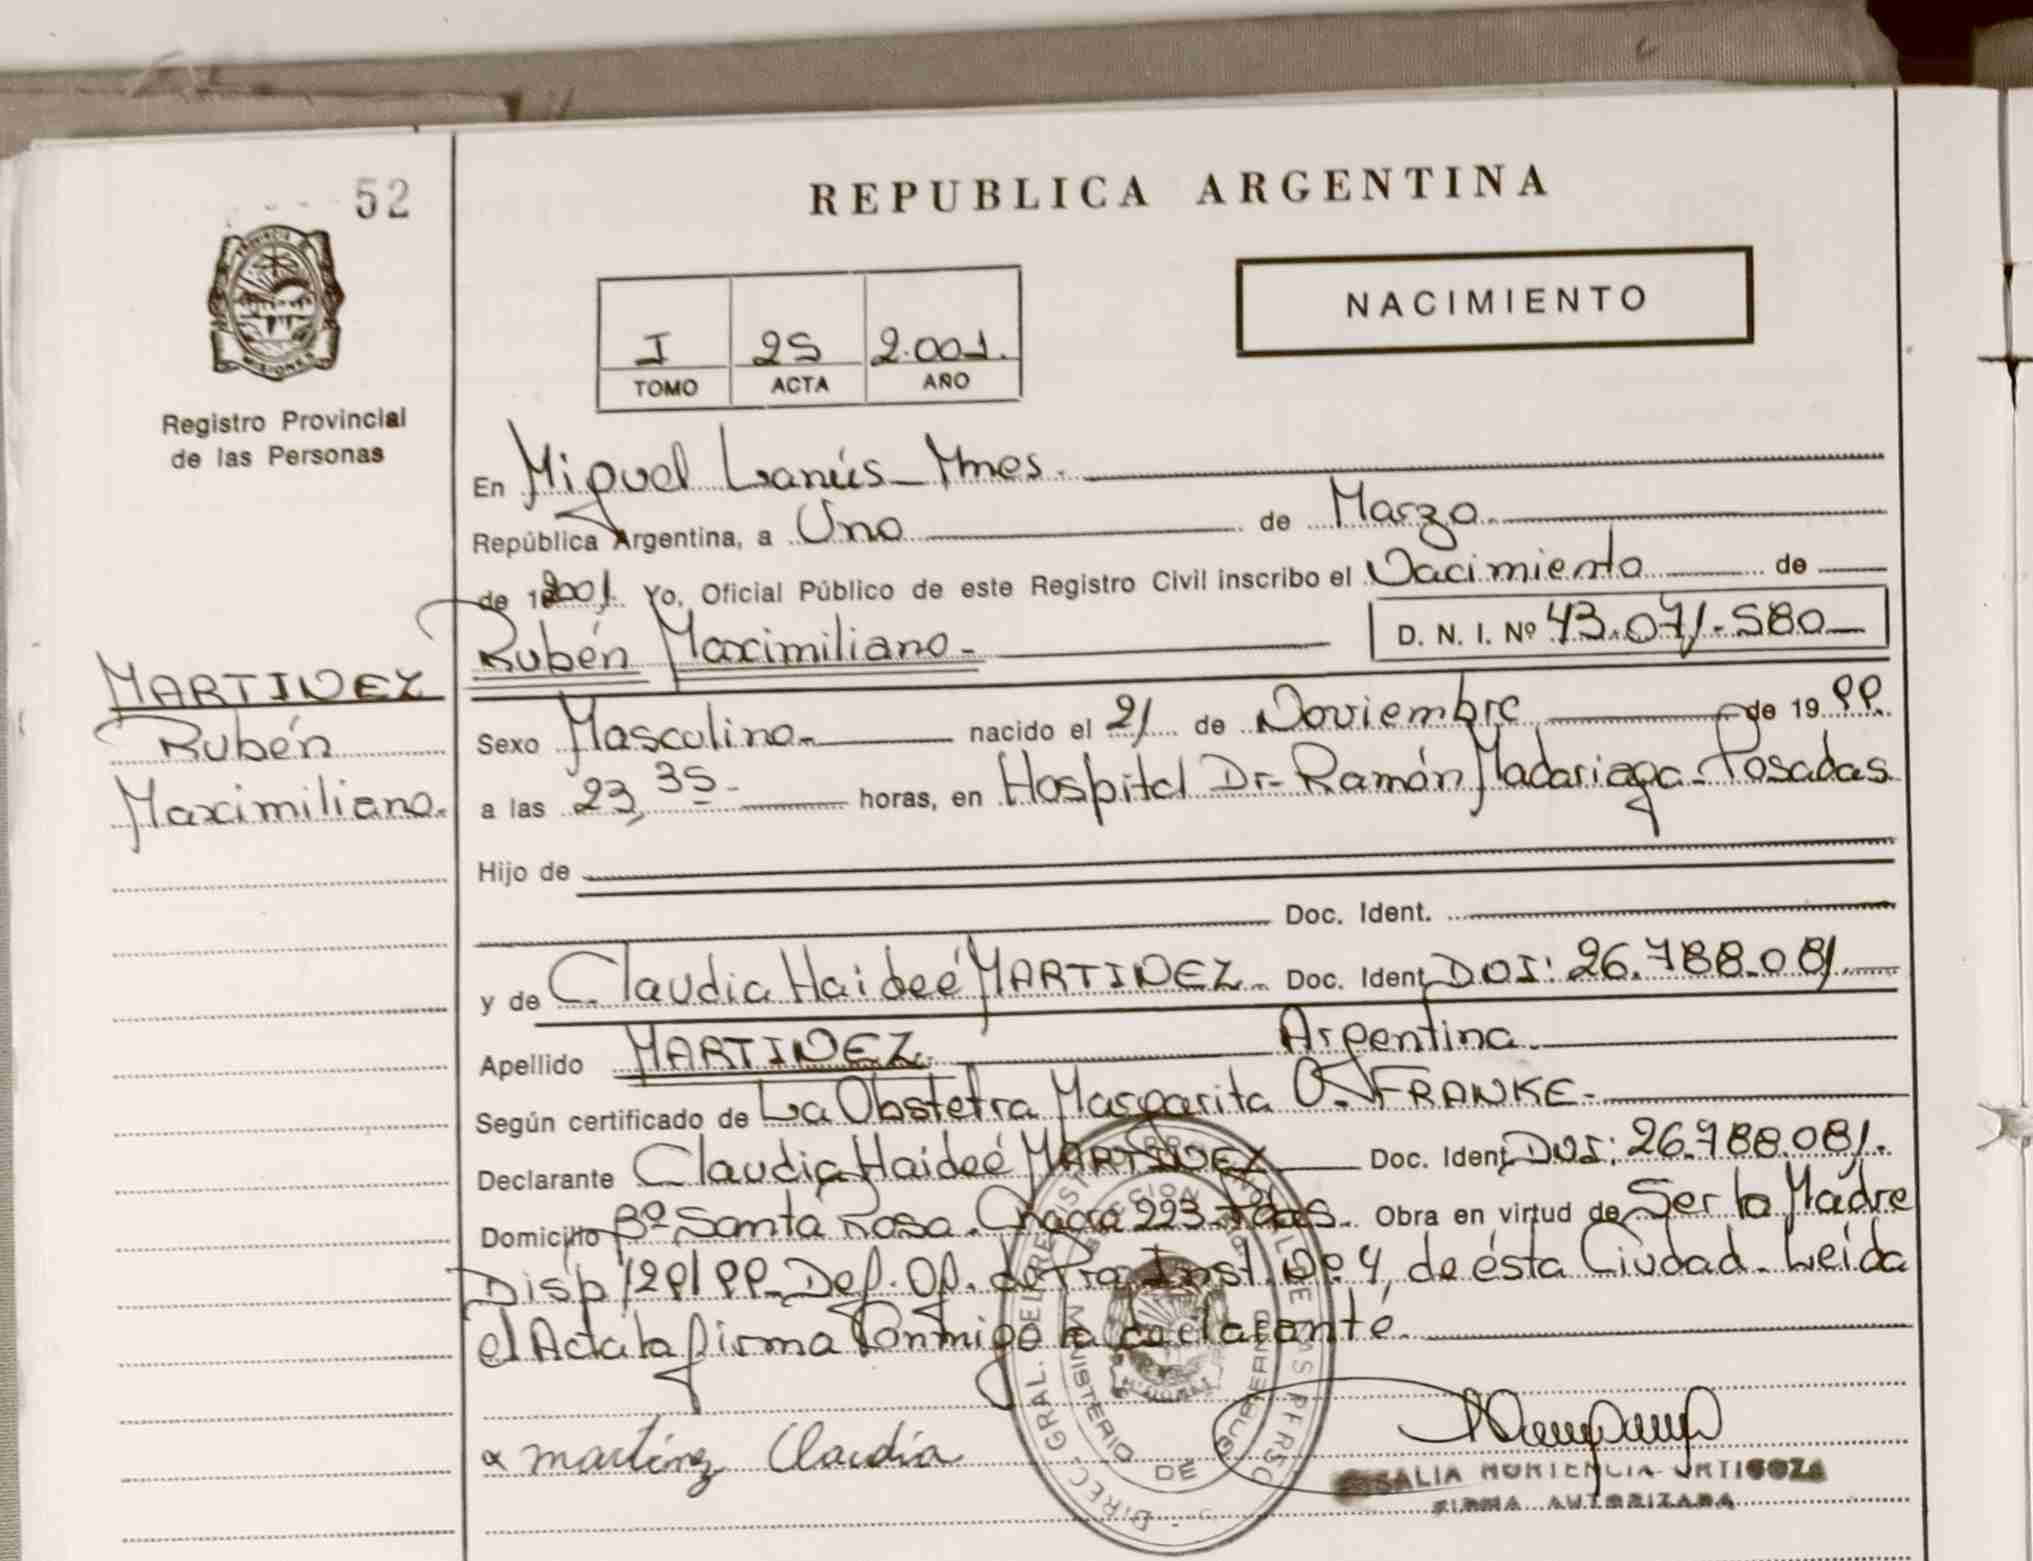 52
REPUBLICA ARGENTINA
NACIMIENTO
I 25 2.001.
TOMO ACTA AÑO
PROVINCIA DE
MISIONES
Registro Provincial
de las Personas
En Miguel Lanús - Mnes.
República Argentina, a Uno de Marzo
de 2001. Yo, Oficial Público de este Registro Civil inscribo el Nacimiento de
Rubén Maximiliano - D. N. I. Nº 43.071.580
MARTINEZ
Rubén
Maximiliano.
Sexo Masculino.- nacido el 21 de Noviembre de 19 99.
a las 23,35- horas, en Hospital Dr- Ramón Madariaga - Posadas
Hijo de
Doc. Ident.
y de Claudia Haideé MARTINEZ. Doc. Ident. DNI: 26.788.081.
Apellido MARTINEZ. Argentina.
Según certificado de La Obstetra Margarita O. FRANKE.-
Declarante Claudia Haideé MARTINEZ Doc. Ident. DNI: 26.788.081.
Domicilio Bº Santa Rosa. Chacra 223 - Pdas. Obra en virtud de Ser la Madre
Disp 129/99 - Def. Of. de Pra Inst. Nº 4, de ésta Ciudad. Leída
el Acta la firma Conmigo la declarante.
martínez Claudia
ROSALIA HORTENCIA ORTIGOZA
FIRMA AUTORIZADA
DIREC. GRAL. DEL REGISTRO PROVINCIAL DE LAS PERSONAS
MINISTERIO DE GOBIERNO